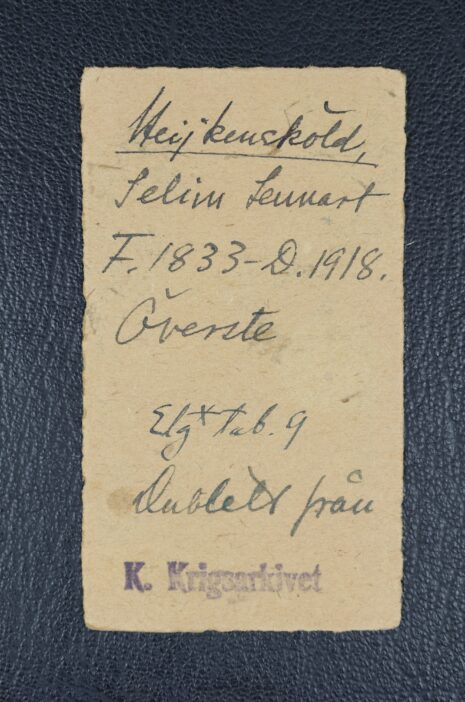 Heijkensköld,
Selim Lennart
F. 1833-D. 1918.
Överste
Elgx tab. 9
Dublett från
K. Krigsarkivet